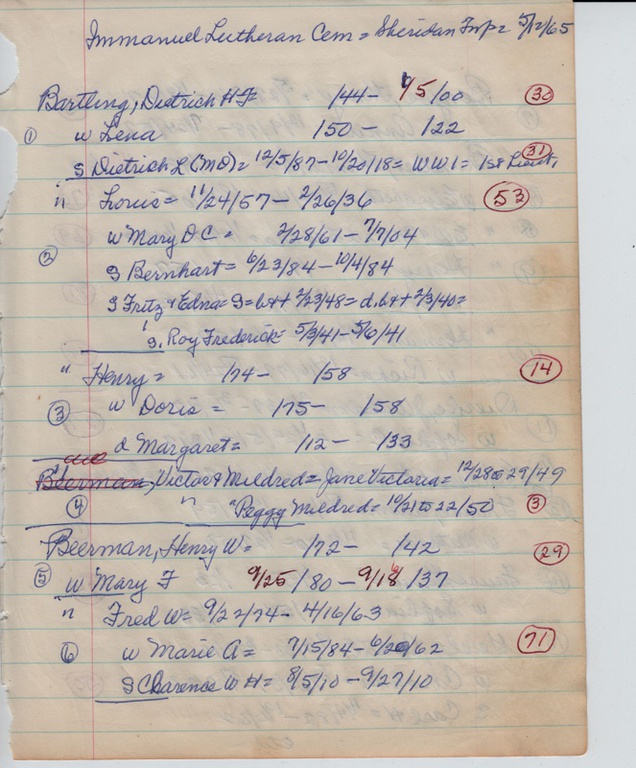 Immanuel Lutheran Cem = Sheridan Twp = 5/12/65
Bartling, Dietrich H F /44 - 1/5/00 (30)
(1) w Lena 150 - 122
S Dietrich L (MD) = 12/5/87 - 10/20/18 = WW1 = 1st Lieut. (31)
" Louis = 11/24/57 - 2/26/36 (53)
w Mary D C = 2/28/61 - 7/7/04
(2) S Bernhart = 6/23/84 - 10/4/84
S Fritz + Edna = S = b+ + 2/23/48 = d. b+ + 2/3/40 =
S. Roy Frederick = 5/3/41 - 5/6/41
" Henry = /74 - /58 (14)
(3) w Doris = /75 - /58
d Margaret = /12 - /33
Beerman, Victor & Mildred = Jane Victoria = 12/28 to 29/49
(4) " " Peggy Mildred = 10/21 to 22/50 (3)
Beerman, Henry W = /72 - /42 (29)
(5) w Mary F 9/25/80 - 9/18/37
" Fred W = 9/22/74 - 4/16/63
(6) w Marie A = 7/15/84 - 6/20/62 (71)
S Clarence W H = 8/5/10 - 9/27/10